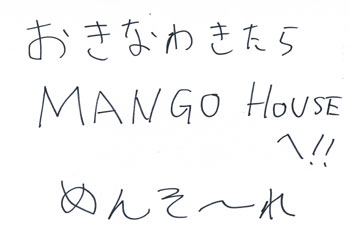 おきなわきたら
MANGO HOUSE
へ!!
めんそ〜れ